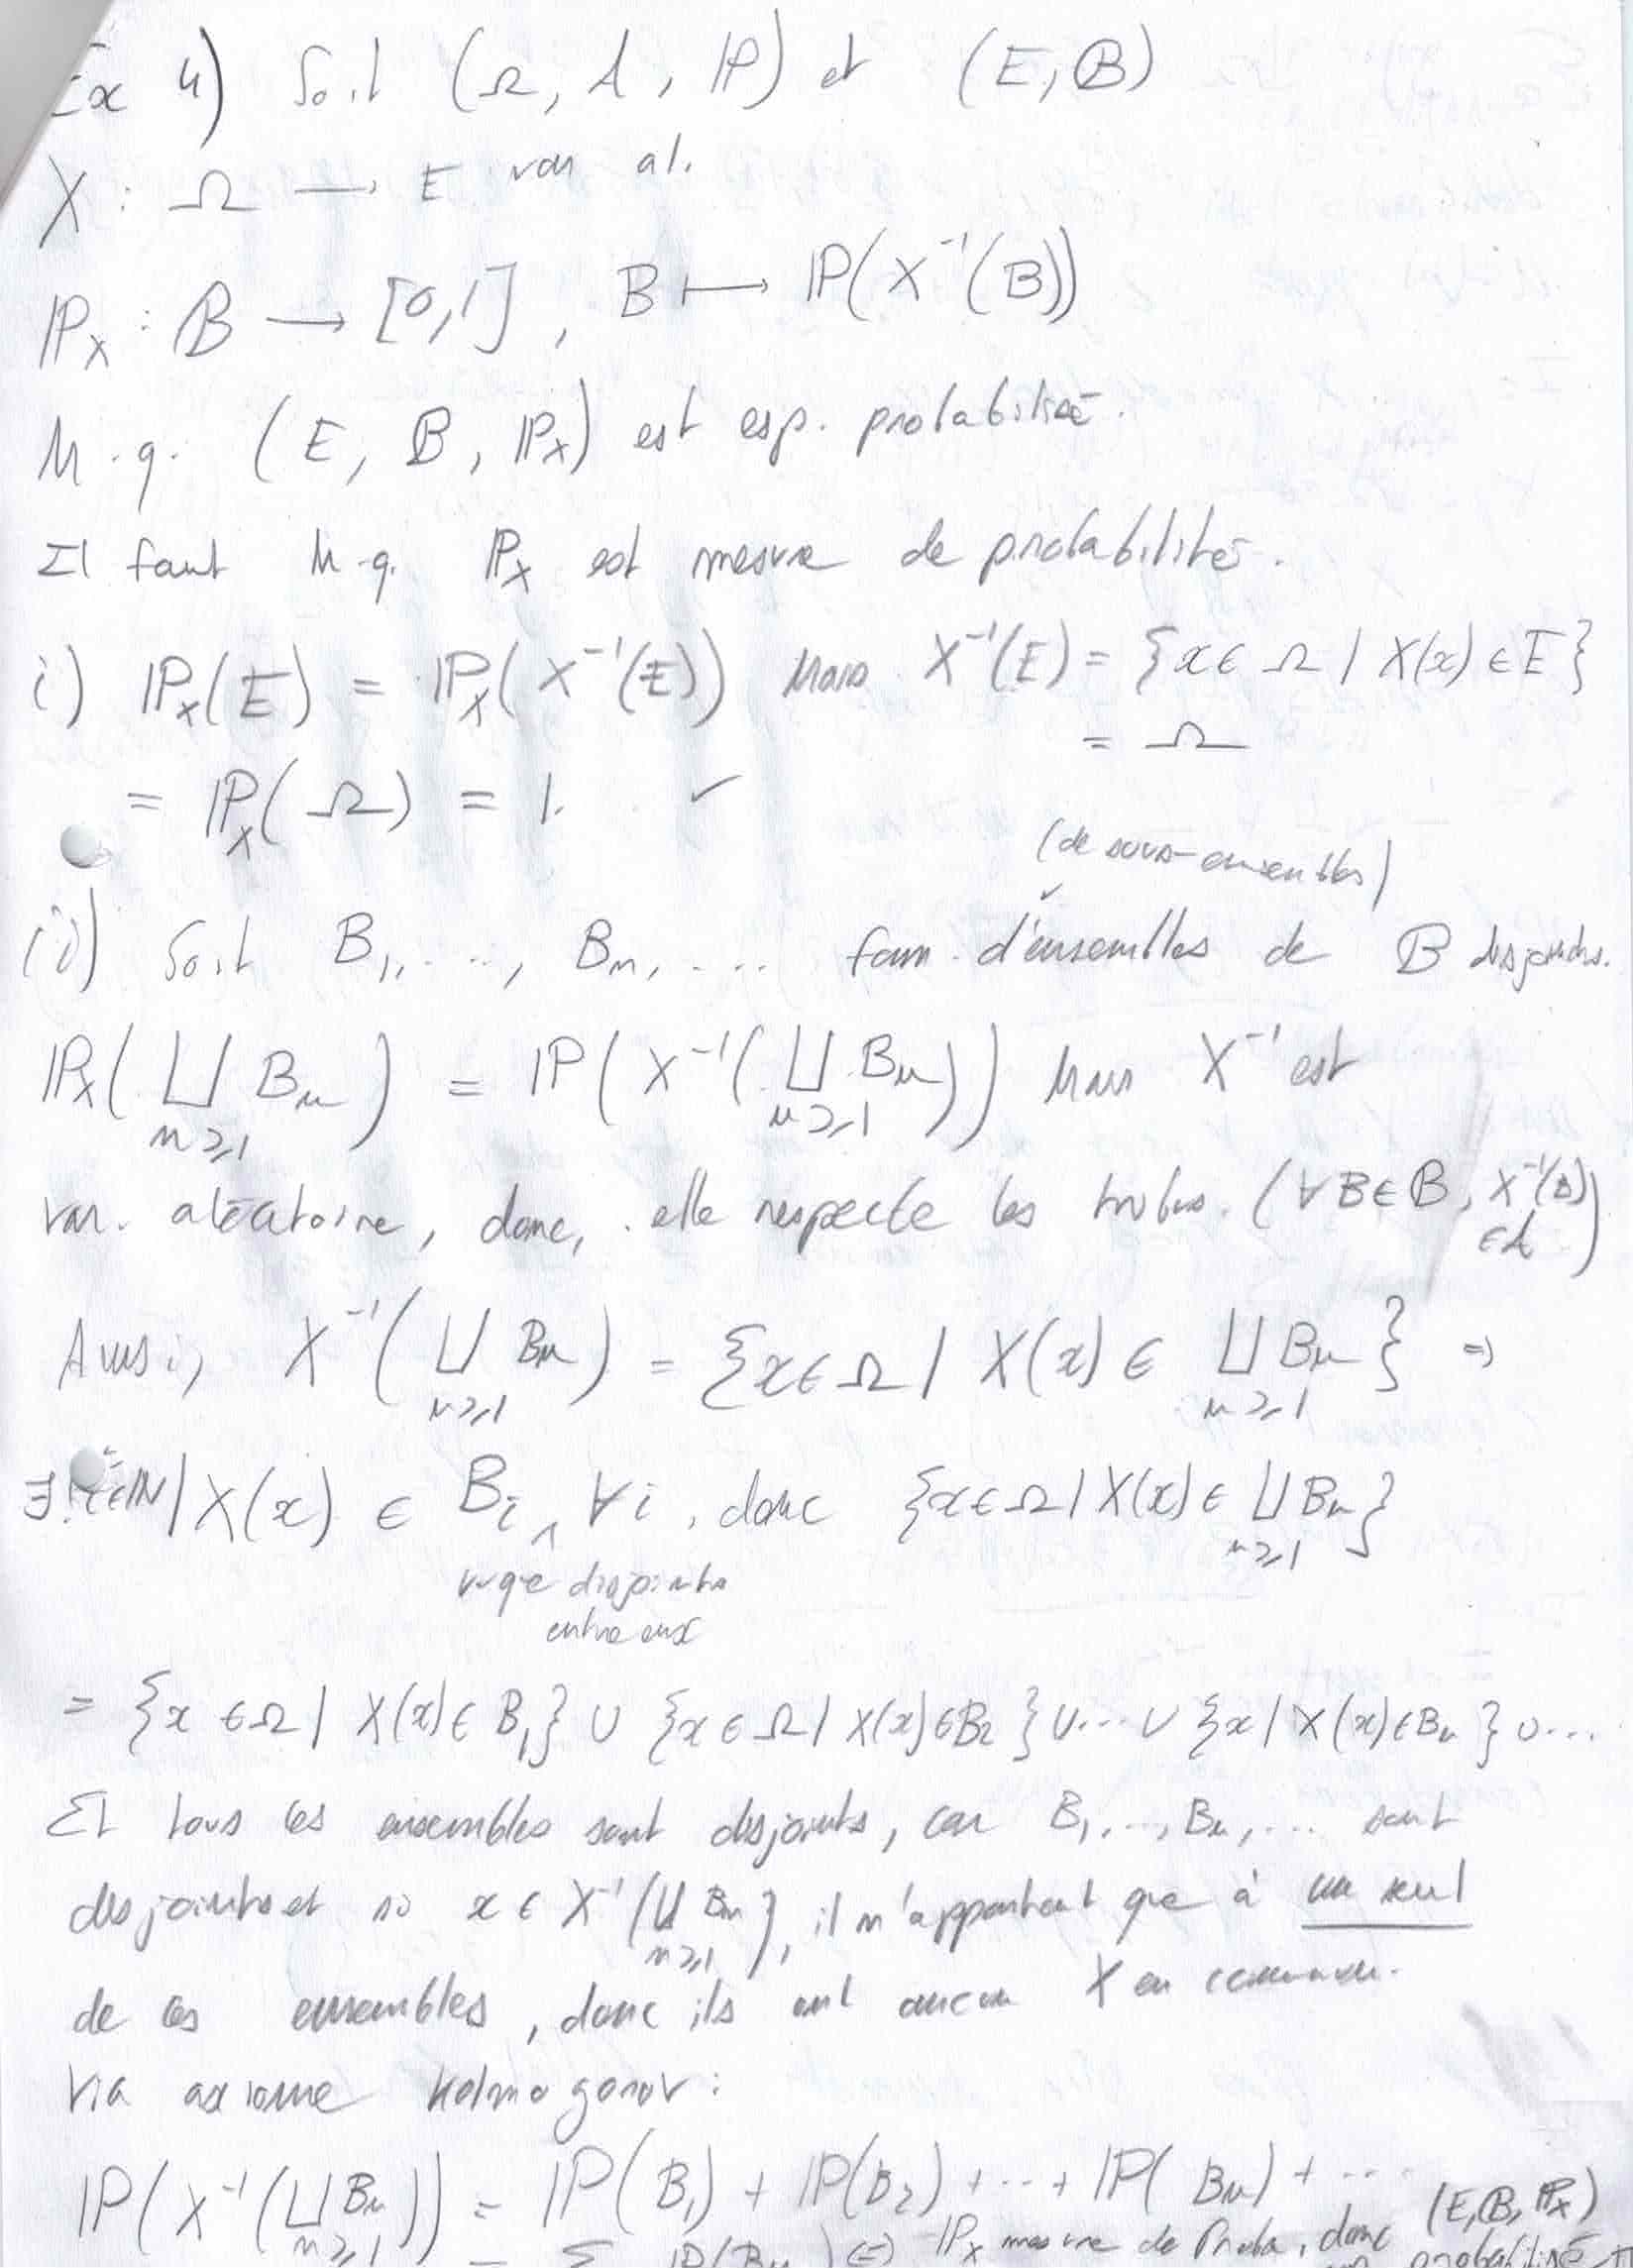 Ex 4) Soit (Ω, A, ℙ) et (E, B)
X : Ω → E var al.
ℙ_X : B → [0,1], B ↦ ℙ(X⁻¹(B))
M.q. (E, B, ℙ_X) est esp. probabilisé.
Il faut M.q. ℙ_X est mesure de probabilité.
i) ℙ_X(E) = ℙ_X(X⁻¹(E)) Mais X⁻¹(E) = {x ∈ Ω | X(x) ∈ E}
= Ω
= ℙ_X(Ω) = 1. ✓
(de sous-ensembles)
ii) Soit B₁, ..., Bₙ, ... fam. d'ensembles de B disjoints.
ℙ_X(⊔_{n≥1} Bₙ) = ℙ(X⁻¹(⊔_{n≥1} Bₙ)) Mais X⁻¹ est
var. aléatoire, donc, elle respecte les tribus. (∀B∈B, X⁻¹(B) ∈ A)
Ainsi, X⁻¹(⊔_{n≥1} Bₙ) = {x ∈ Ω | X(x) ∈ ⊔_{n≥1} Bₙ} ⇒
∃! i∈ℕ | X(x) ∈ B_i, ∀i, donc {x ∈ Ω | X(x) ∈ ⊔_{n≥1} Bₙ}
vu que disjoints
entre eux
= {x ∈ Ω | X(x) ∈ B₁} ∪ {x ∈ Ω | X(x) ∈ B₂} ∪ ... ∪ {x | X(x) ∈ Bₙ} ∪ ...
Et tous ces ensembles sont disjoints, car B₁, ..., Bₙ, ... sont
disjoints et si x ∈ X⁻¹(⊔_{n≥1} Bₙ), il n'appartient que à un seul
de ces ensembles, donc ils ont aucun X en commun.
Via axiome Kolmogorov :
ℙ(X⁻¹(⊔_{n≥1} Bₙ)) = ℙ(B₁) + ℙ(B₂) + ... + ℙ(Bₙ) + ...
ℙ_X mesure de Proba, donc (E, B, ℙ_X)